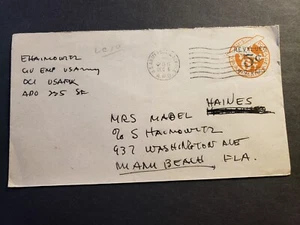 E HAIMOWITZ
CIV EMP USARMY
OCI USAFIK
APO 235 SF
REVALUED
5¢
MRS MABEL HAINES
% S HAIMOWITZ
937 WASHINGTON AVE
MIAMI BEACH FLA.